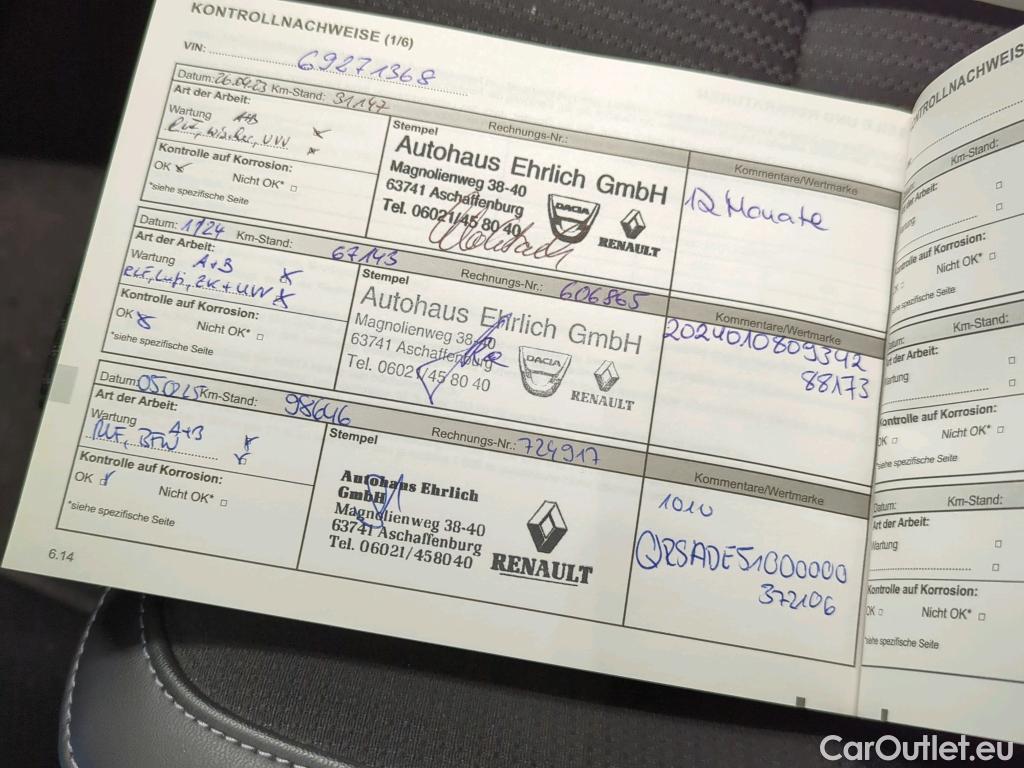 KONTROLLNACHWEISE (1/6)
VIN: 69271368
Datum: 26.04.23 Km-Stand: 31147 Rechnungs-Nr.:
Art der Arbeit:
Wartung A+B
UVV
Kontrolle auf Korrosion:
OK Nicht OK*
*siehe spezifische Seite
Stempel
Autohaus Ehrlich GmbH
Magnolienweg 38-40
63741 Aschaffenburg
Tel. 06021/45 80 40
DACIA
RENAULT
Kommentare/Wertmarke
12 Monate
Datum: 1124 Km-Stand: 67143 Rechnungs-Nr.: 606865
Art der Arbeit:
Wartung A+B
Kontrolle auf Korrosion:
OK Nicht OK*
*siehe spezifische Seite
Stempel
Autohaus Ehrlich GmbH
Magnolienweg 38-40
63741 Aschaffenburg
Tel. 06021/45 80 40
DACIA
RENAULT
Kommentare/Wertmarke
2024010809342
88173
Datum: 050225 Km-Stand: 98646 Rechnungs-Nr.: 724917
Art der Arbeit:
Wartung A+B
Kontrolle auf Korrosion:
OK Nicht OK*
*siehe spezifische Seite
Stempel
Autohaus Ehrlich
GmbH
Magnolienweg 38-40
63741 Aschaffenburg
Tel. 06021/458040
RENAULT
Kommentare/Wertmarke
1010
QRSADE51000000
372106
6.14
KONTROLLNACHWEISE
Km-Stand:
Art der Arbeit:
Wartung
Kontrolle auf Korrosion:
OK Nicht OK*
*siehe spezifische Seite
Datum: Km-Stand:
Art der Arbeit:
Wartung
Kontrolle auf Korrosion:
OK Nicht OK*
*siehe spezifische Seite
Datum: Km-Stand:
Art der Arbeit:
Wartung
Kontrolle auf Korrosion:
OK Nicht OK*
*siehe spezifische Seite
CarOutlet.eu